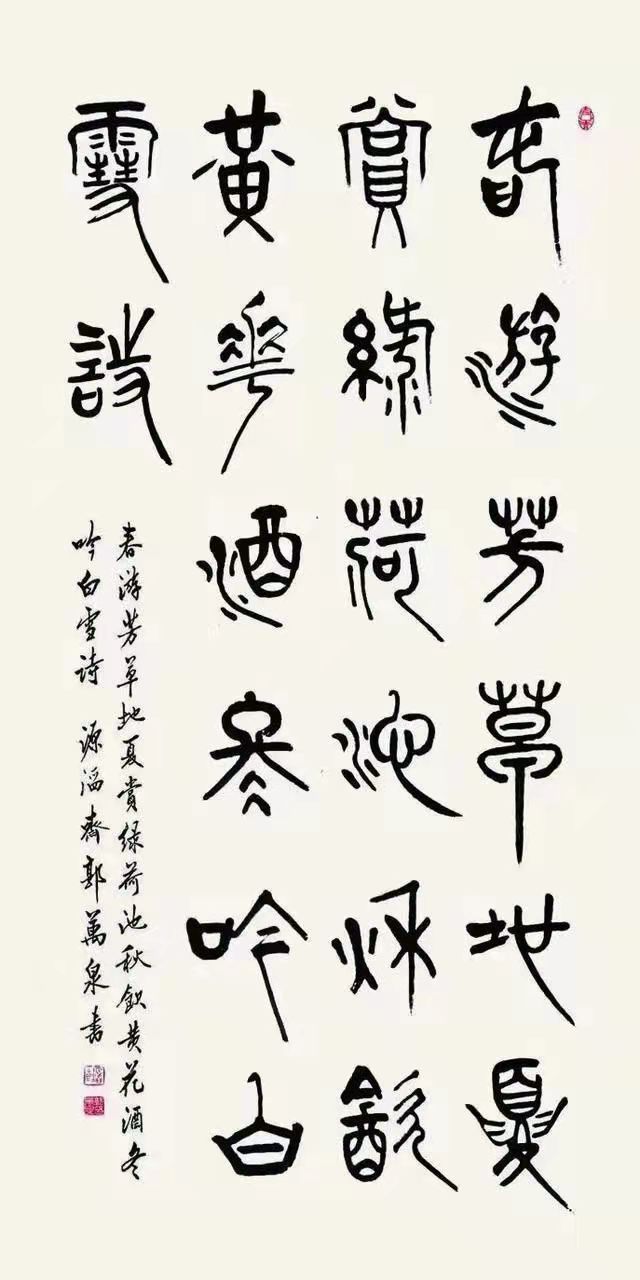 春遊芳草地夏
賞綠荷池秋飲
黃花酒冬吟白
雪詩
春游芳草地夏赏绿荷池秋飲黄花酒冬
吟白雪诗 源滔齋郭萬泉书